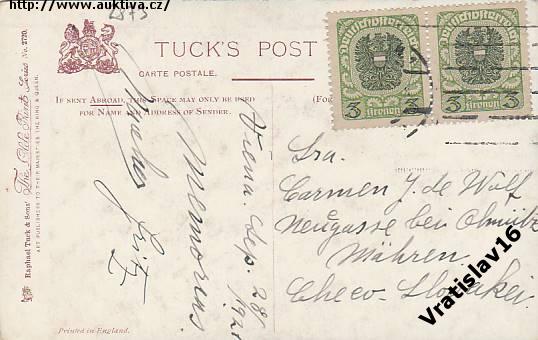 http://www.auktiva.cz/
2873
TUCK'S POST
CARTE POSTALE.
IF SENT ABROAD, THIS SPACE MAY ONLY BE USED
FOR NAME AND ADDRESS OF SENDER.
(FOR
Deutschösterreich
3 3
Kronen
Deutschösterreich
3 3
Kronen
Viena. Sep. 28/1921
Memorias
Fritz
Sra.
Carmen J. de Wolf
Neugasse bei Olmütz
Mähren.
Checo-Slovakei.
Raphael Tuck & Sons' Series No. 2720.
ART PUBLISHERS TO THEIR MAJESTIES THE KING & QUEEN.
Printed in England.
Vratislav16